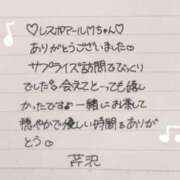 ♡レスポマールMちゃん♡
ありがとうございました♡
サプライズ訪問でびっくり
でした♡会えてとっても嬉し
かったですよ一緒にお茶して
穏やかで優しい時間をありが
とう♡
芹沢